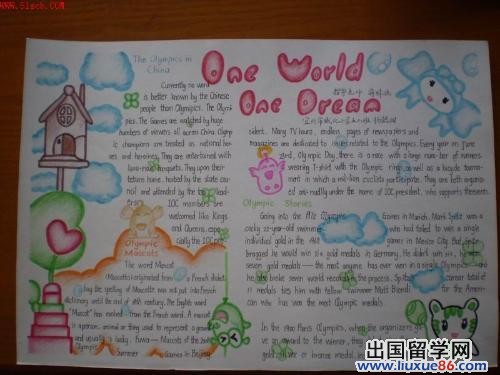 www.51scb.com
One World
One Dream
The Olympics in
China
Currently no word
is better known by the Chinese
people than Olympics. The Olym
pics. The Games are watched by huge
numbers of viewers all across China. Olympic
champions are treated as national
heroes and heroines. They are entertained with
They upon their
return home, hosted by the state
council and attended by the
IOC members are
welcomed like Kings
and Queens, especially
the IOC
sident. Many TV hours, endless pages of newspapers and
magazines are dedicated to issues related to the Olympics. Every year on June
23rd, Olympic Day, there is a race with a large number of runners
wearing T-shirt with the Olympic rings as well as a bicycle tourament
in which a million cyclists participate. They are both organized
annually under the name of IOC president, who supports these
Olympic Stories
Going into the 1972 Olympic Games in Munich, Mark Spitz was a
cocky 22-year-old swimmer who had failed to win a single
individual gold in the 1968 games in Mexico City. But Spitz
bragged he would win six gold medals in Germany. He didn't win six, he
seven gold medals — the most anyone has ever won in a single Olympics — and
he broke seven world records in the process. Spitz's career total of
11 medals ties him with fellow swimmer Matt Biondi for the Ameri
can who has won the most Olympic medals.
In the 1900 Paris Olympics, when the organizers
gold, silver or bronze medal
Olympic
Mascots
The word Mascot
(Mascotte) originated from a French dialect
the spelling of Mascotte was not put into French
dictionary until the end of 19th century. The English word
"Mascot" was evolved from the French word. A mascot
is a person, animal or thing used to represent a
and is usually lucky. Fuwa — Mascots of the
Olympic Summer Games in Beijing
出国留学网
www.liuxue86.com